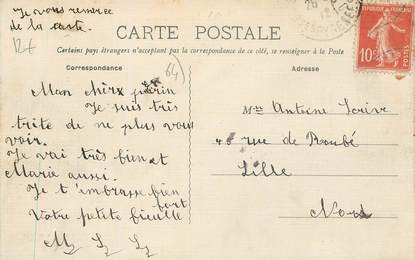 Je vous remercie
de la carte.
CARTE POSTALE
Certains pays étrangers n'acceptent pas la correspondance de ce côté, se renseigner à la Poste
Correspondance
Adresse
64
RÉPUBLIQUE FRANÇAISE
10
Mon parrin
Je suis très
trite de ne plus vous
voir.
Je vai très bien et
Marie aussi.
Je t'embrasse bien
fort
Votre petite fieulle
M. L. L.
Antoine Scrive
46 rue de Roubé
Lille
Nord